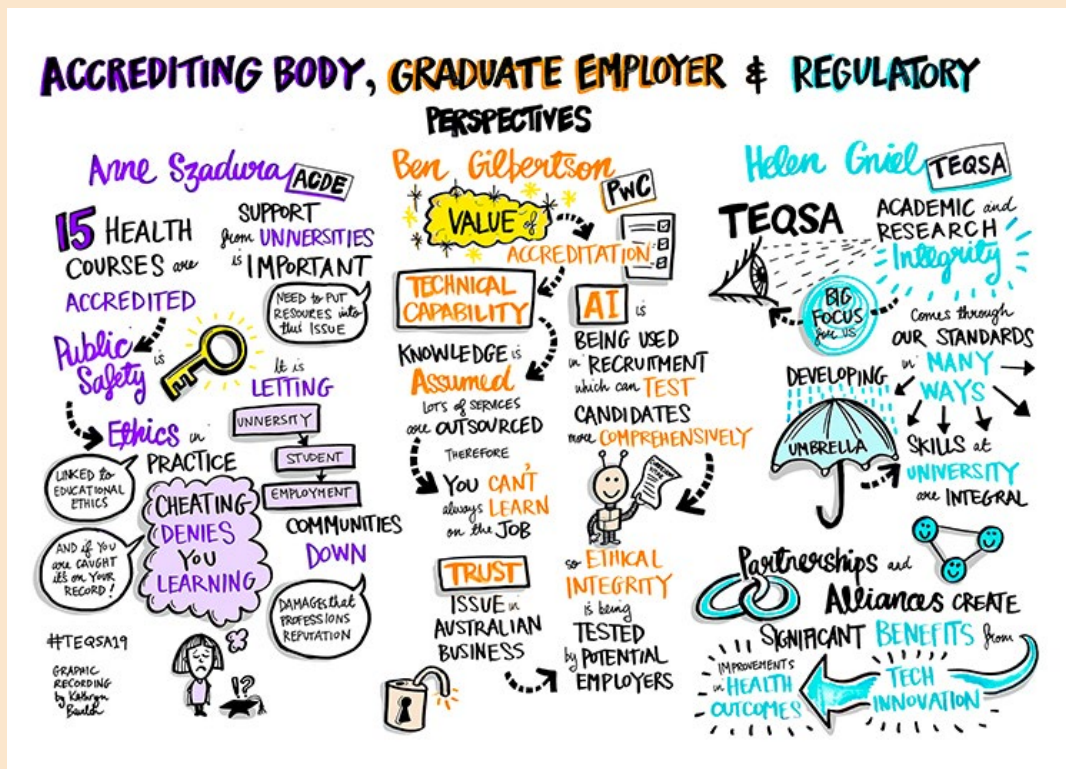 ACCREDITING BODY, GRADUATE EMPLOYER & REGULATORY
PERSPECTIVES
Anne Szadura ACDE
15 HEALTH
COURSES are
ACCREDITED
Public
Safety
is
Ethics in
PRACTICE
LINKED to
EDUCATIONAL
ETHICS
AND if YOU
are CAUGHT
it's on YOUR
RECORD!
CHEATING
DENIES
YOU
LEARNING
SUPPORT
from UNIVERSITIES
is IMPORTANT
NEED to PUT
RESOURCES into
this ISSUE
It is
LETTING
UNIVERSITY
STUDENT
EMPLOYMENT
COMMUNITIES
DOWN
DAMAGES that
PROFESSIONS
REPUTATION
!?
#TEQSA19
GRAPHIC
RECORDING
by Kathryn
Ben Gilbertson
PwC
VALUE of
ACCREDITATION
TECHNICAL
CAPABILITY
KNOWLEDGE is
Assumed
LOTS of SERVICES
are OUTSOURCED
THEREFORE
YOU CAN'T
always LEARN
on the JOB
TRUST
ISSUE in
AUSTRALIAN
BUSINESS
AI is
BEING USED
in RECRUITMENT
which can TEST
CANDIDATES
more COMPREHENSIVELY
so ETHICAL
INTEGRITY
is being
TESTED
by POTENTIAL
EMPLOYERS
Helen Gniel TEQSA
TEQSA
ACADEMIC and
RESEARCH
Integrity
BIG
FOCUS
for US
comes through
OUR STANDARDS
in MANY
WAYS
DEVELOPING
UMBRELLA
SKILLS at
UNIVERSITY
are INTEGRAL
Partnerships and
Alliances CREATE
SIGNIFICANT BENEFITS from
TECH
INNOVATION
IMPROVEMENTS
in HEALTH
OUTCOMES